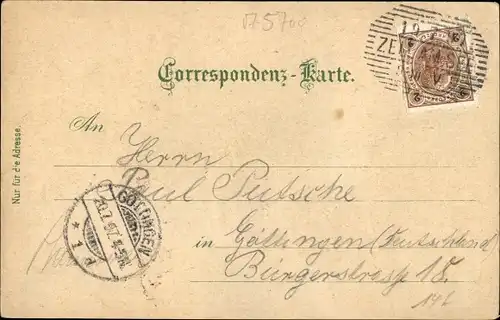 175700
Correspondenz-Karte.
Nur für die Adresse.
An
Herrn
Paul Peutsche
in Göttingen (Deutschland)
Bürgerstrasse 18.
GÖTTINGEN
* 1 *